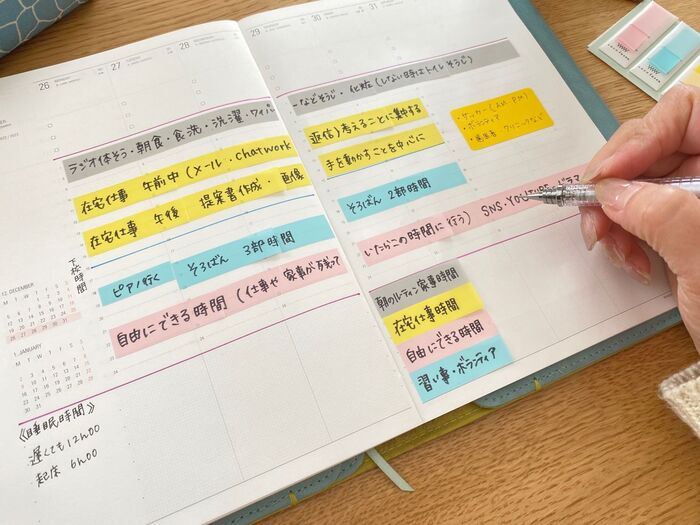 26
27
28
29
30
31
ラジオ体そう・朝食・食洗・洗濯・ワイパ
などそうじ・化粧(しない時はトイレそうじ)
在宅仕事 午前中(メール・chatwork
返信)考えることに集中する
在宅仕事 午後 提案書作成・画像
手を動かすことを中心に
・サッカー(AM・PM)
・ボランティア
下校時間
ピアノ行く
そろばん 3部時間
そろばん 2部時間
自由にできる時間(仕事や家事が残って
いたらこの時間に行う) SNS・YOUTUBE・ドラマ
朝のルーティン家事時間
在宅仕事時間
自由にできる時間
習い事・ボランティア
12. DECEMBER
1. JANUARY
《睡眠時間》
遅くても12h00
起床 6h00